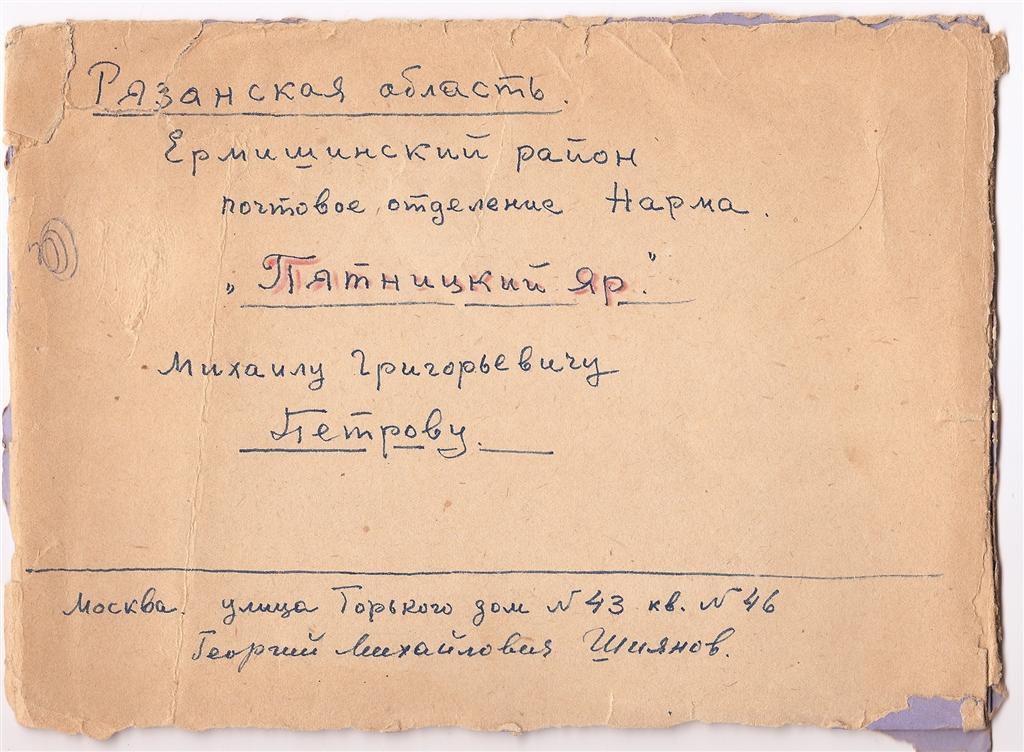 Рязанская область.
Ермишинский район
почтовое отделение Нарма.
„Пятницкий Яр."
Михаилу Григорьевичу
Петрову.
Москва. улица Горького дом N 43 кв. N 46
Георгий Михайлович Шиянов.